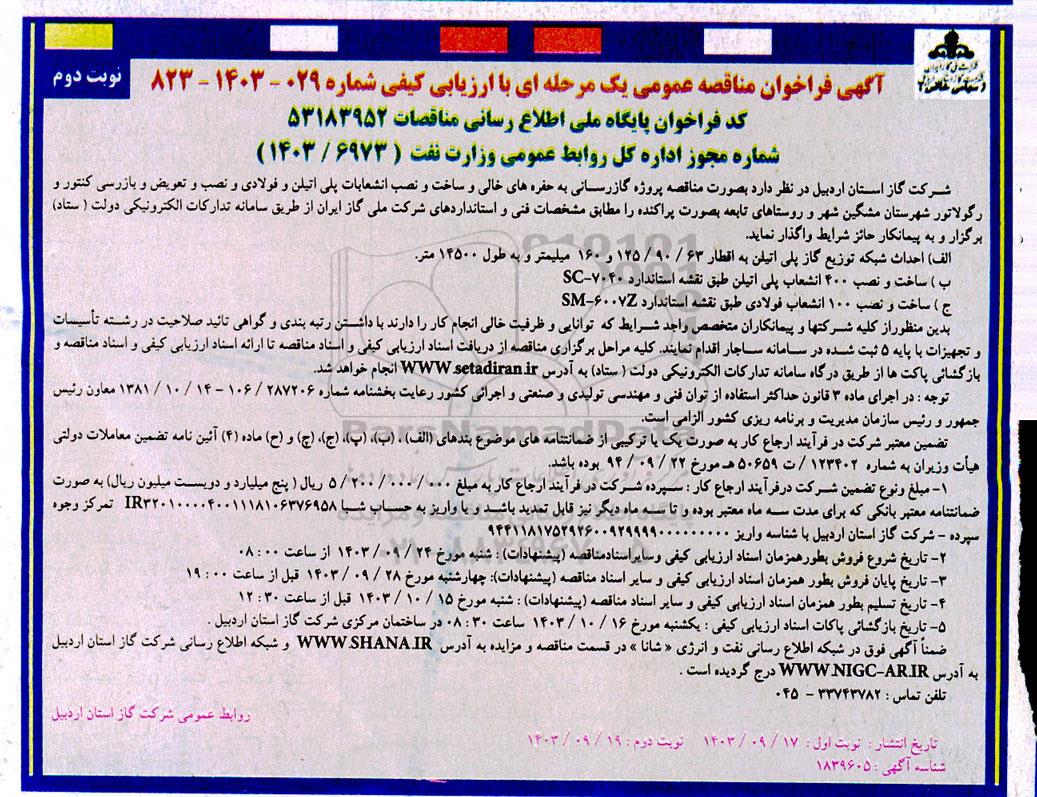 نوبت دوم
آگهی فراخوان مناقصه عمومی یک مرحله ای با ارزیابی کیفی شماره ۰۲۹ - ۱۴۰۳ - ۸۲۳
کد فراخوان پایگاه ملی اطلاع رسانی مناقصات ۵۳۱۸۳۹۵۲
شماره مجوز اداره کل روابط عمومی وزارت نفت ( ۶۹۷۳ / ۱۴۰۳ )
شرکت گاز استان اردبیل در نظر دارد بصورت مناقصه پروژه گازرسانی به حفره های خالی و ساخت و نصب انشعابات پلی اتیلن و فولادی و نصب و تعویض و بازرسی کنتور و
رگولاتور شهرستان مشگین شهر و روستاهای تابعه بصورت پراکنده را مطابق مشخصات فنی و استانداردهای شرکت ملی گاز ایران از طریق سامانه تدارکات الکترونیکی دولت ( ستاد)
برگزار و به پیمانکار حائز شرایط واگذار نماید.
الف) احداث شبکه توزیع گاز پلی اتیلن به اقطار ۶۳ / ۹۰ / ۱۲۵ و ۱۶۰ میلیمتر و به طول ۱۴۵۰۰ متر.
ب ) ساخت و نصب ۴۰۰ انشعاب پلی اتیلن طبق نقشه استاندارد SC-۷۰۴۰
ج ) ساخت و نصب ۱۰۰ انشعاب فولادی طبق نقشه استاندارد SM-۶۰۰۷Z
بدین منظوراز کلیه شرکتها و پیمانکاران متخصص واجد شرایط که توانایی و ظرفیت خالی انجام کار را دارند با داشتن رتبه بندی و گواهی تائید صلاحیت در رشته تأسیسات
و تجهیزات با پایه ۵ ثبت شده در سامانه ساجار اقدام نمایند. کلیه مراحل برگزاری مناقصه از دریافت اسناد ارزیابی کیفی و اسناد مناقصه تا ارائه اسناد ارزیابی کیفی و اسناد مناقصه و
بازگشائی پاکت ها از طریق درگاه سامانه تدارکات الکترونیکی دولت ( ستاد) به آدرس WWW.setadiran.ir انجام خواهد شد.
توجه : در اجرای ماده ۳ قانون حداکثر استفاده از توان فنی و مهندسی تولیدی و صنعتی و اجرائی کشور رعایت بخشنامه شماره ۲۸۷۲۰۶ / ۱۰۶ - ۱۴ / ۱۰ / ۱۳۸۱ معاون رئیس
جمهور و رئیس سازمان مدیریت و برنامه ریزی کشور الزامی است.
تضمین معتبر شرکت در فرآیند ارجاع کار به صورت یک یا ترکیبی از ضمانتنامه های موضوع بندهای (الف) ، (ب)، (پ)، (ج)، (چ) و (ح) ماده (۴) آئین نامه تضمین معاملات دولتی
هیأت وزیران به شماره ۱۲۳۴۰۲ / ت ۵۰۶۵۹ هـ مورخ ۲۲ / ۰۹ / ۹۴ بوده باشد.
۱- مبلغ ونوع تضمین شرکت درفرآیند ارجاع کار : سپرده شرکت در فرآیند ارجاع کار به مبلغ ۰۰۰/ ۰۰۰/ ۲۰۰/ ۵ ریال ( پنج میلیارد و دویست میلیون ریال) به صورت
ضمانتنامه معتبر بانکی که برای مدت سه ماه معتبر بوده و تا سه ماه دیگر نیز قابل تمدید باشد و یا واریز به حساب شبا تمرکز وجوه
سپرده - شرکت گاز استان اردبیل با شناسه واریز
۲- تاریخ شروع فروش بطورهمزمان اسناد ارزیابی کیفی وسایر اسنادمناقصه (پیشنهادات) : شنبه مورخ ۲۴ / ۰۹ / ۱۴۰۳ از ساعت ۰۰ : ۰۸
۳- تاریخ پایان فروش بطور همزمان اسناد ارزیابی کیفی و سایر اسناد مناقصه (پیشنهادات): چهارشنبه مورخ ۲۸ / ۰۹ / ۱۴۰۳ قبل از ساعت ۰۰ : ۱۹
۴- تاریخ تسلیم بطور همزمان اسناد ارزیابی کیفی و سایر اسناد مناقصه (پیشنهادات) : شنبه مورخ ۱۵ / ۱۰ / ۱۴۰۳ قبل از ساعت ۳۰ : ۱۲
۵- تاریخ بازگشائی پاکات اسناد ارزیابی کیفی : یکشنبه مورخ ۱۶ / ۱۰ / ۱۴۰۳ ساعت ۳۰ : ۰۸ در ساختمان مرکزی شرکت گاز استان اردبیل .
ضمناً آگهی فوق در شبکه اطلاع رسانی نفت و انرژی « شانا » در قسمت مناقصه و مزایده به آدرس WWW.SHANA.IR و شبکه اطلاع رسانی شرکت گاز استان اردبیل
به آدرس WWW.NIGC-AR.IR درج گردیده است .
تلفن تماس : ۳۳۷۴۳۷۸۲ - ۰۴۵
روابط عمومی شرکت گاز استان اردبیل
تاریخ انتشار : نوبت اول : ۱۷ / ۰۹ / ۱۴۰۳ نوبت دوم : ۱۹ / ۰۹ / ۱۴۰۳
شناسه آگهی : ۱۸۳۹۶۰۵
ParsNamadData